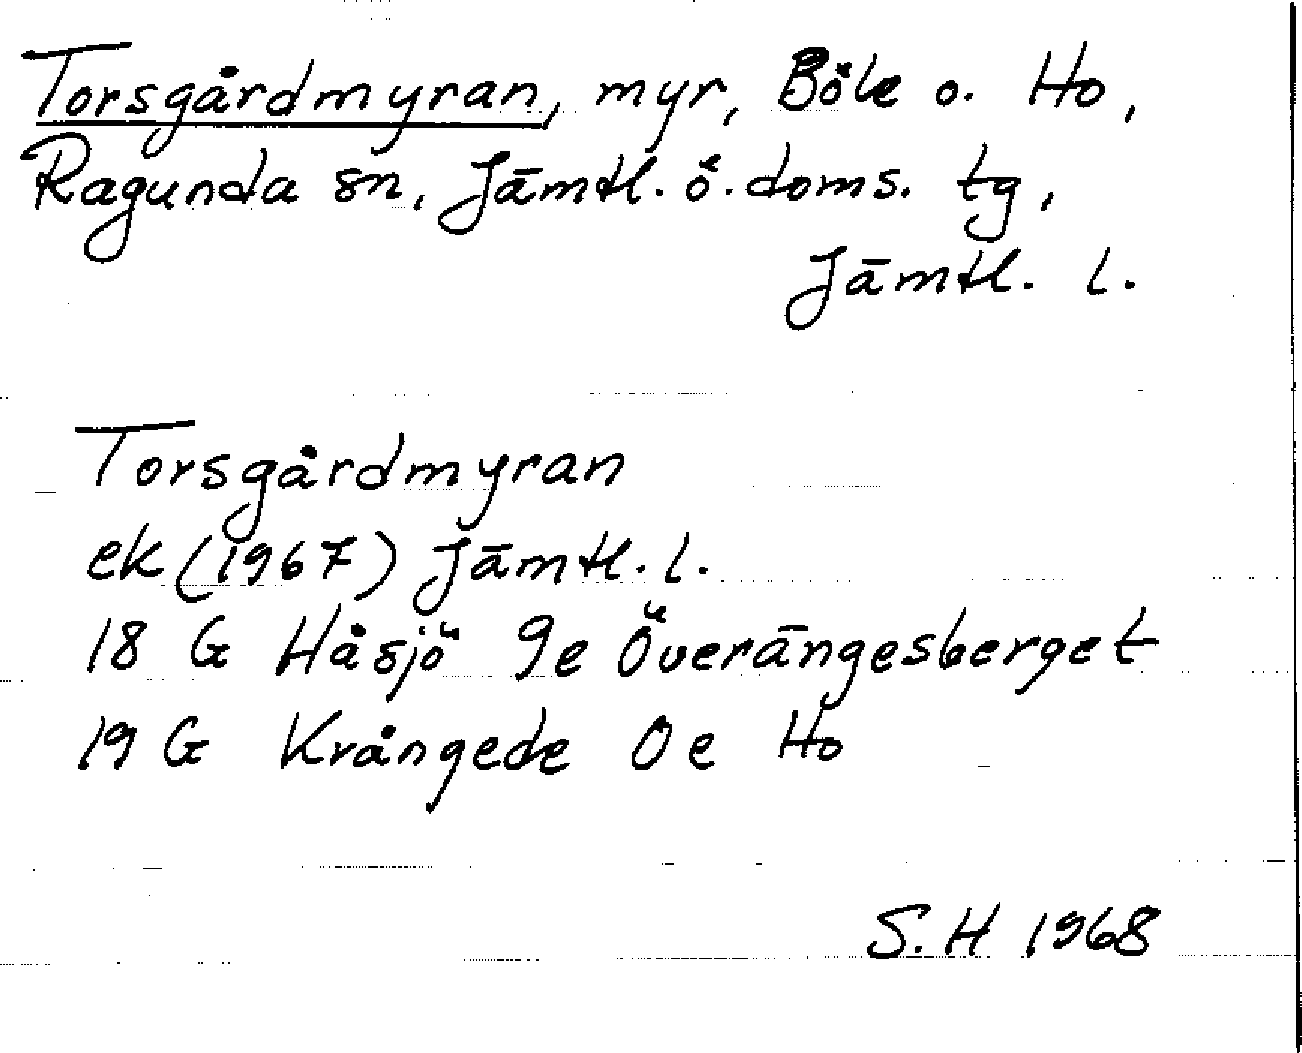 Torsgårdmyran, myr, Böle o. Ho,
Ragunda sn, Jämtl. ö. doms. tg,
Jämtl. l.
Torsgårdmyran
ek (1967) Jämtl. l.
18 G Håsjö 9e Överängesberget
19 G Krångede 0e Ho
S. H 1968